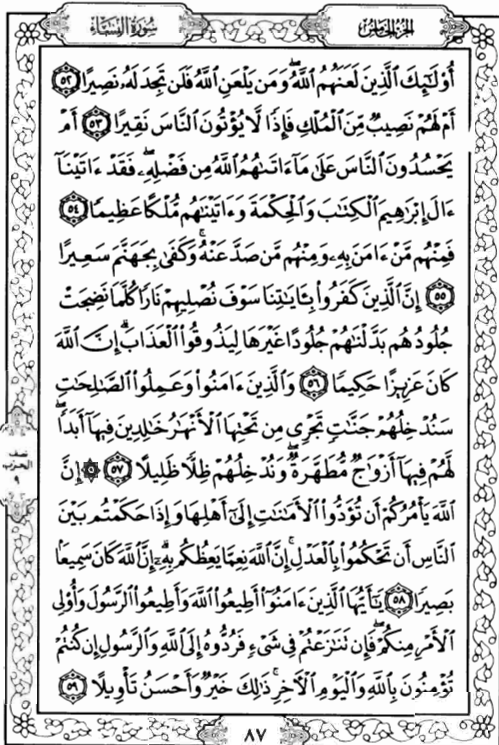 سُورَةُ النِّسَاءِ
الجزء الخامس
أُوْلَٰٓئِكَ ٱلَّذِينَ لَعَنَهُمُ ٱللَّهُ وَمَن يَلْعَنِ ٱللَّهُ فَلَن تَجِدَ لَهُۥ نَصِيرًا ٥٢
أَمْ لَهُمْ نَصِيبٌ مِّنَ ٱلْمُلْكِ فَإِذًا لَّا يُؤْتُونَ ٱلنَّاسَ نَقِيرًا ٥٣ أَمْ
يَحْسُدُونَ ٱلنَّاسَ عَلَىٰ مَآ ءَاتَىٰهُمُ ٱللَّهُ مِن فَضْلِهِۦ فَقَدْ ءَاتَيْنَآ
ءَالَ إِبْرَٰهِيمَ ٱلْكِتَٰبَ وَٱلْحِكْمَةَ وَءَاتَيْنَٰهُم مُّلْكًا عَظِيمًا ٥٤
فَمِنْهُم مَّنْ ءَامَنَ بِهِۦ وَمِنْهُم مَّن صَدَّ عَنْهُ وَكَفَىٰ بِجَهَنَّمَ سَعِيرًا
٥٥ إِنَّ ٱلَّذِينَ كَفَرُوا۟ بِـَٔايَٰتِنَا سَوْفَ نُصْلِيهِمْ نَارًا كُلَّمَا نَضِجَتْ
جُلُودُهُم بَدَّلْنَٰهُمْ جُلُودًا غَيْرَهَا لِيَذُوقُوا۟ ٱلْعَذَابَ إِنَّ ٱللَّهَ
كَانَ عَزِيزًا حَكِيمًا ٥٦ وَٱلَّذِينَ ءَامَنُوا۟ وَعَمِلُوا۟ ٱلصَّٰلِحَٰتِ
سَنُدْخِلُهُمْ جَنَّٰتٍ تَجْرِى مِن تَحْتِهَا ٱلْأَنْهَٰرُ خَٰلِدِينَ فِيهَآ أَبَدًا
لَّهُمْ فِيهَآ أَزْوَٰجٌ مُّطَهَّرَةٌ وَنُدْخِلُهُمْ ظِلًّا ظَلِيلًا ٥٧ إِنَّ
ٱللَّهَ يَأْمُرُكُمْ أَن تُؤَدُّوا۟ ٱلْأَمَٰنَٰتِ إِلَىٰٓ أَهْلِهَا وَإِذَا حَكَمْتُم بَيْنَ
ٱلنَّاسِ أَن تَحْكُمُوا۟ بِٱلْعَدْلِ إِنَّ ٱللَّهَ نِعِمَّا يَعِظُكُم بِهِۦٓ إِنَّ ٱللَّهَ كَانَ سَمِيعًۢا
بَصِيرًا ٥٨ يَٰٓأَيُّهَا ٱلَّذِينَ ءَامَنُوٓا۟ أَطِيعُوا۟ ٱللَّهَ وَأَطِيعُوا۟ ٱلرَّسُولَ وَأُو۟لِى
ٱلْأَمْرِ مِنكُمْ فَإِن تَنَٰزَعْتُمْ فِى شَىْءٍ فَرُدُّوهُ إِلَى ٱللَّهِ وَٱلرَّسُولِ إِن كُنتُمْ
تُؤْمِنُونَ بِٱللَّهِ وَٱلْيَوْمِ ٱلْءَاخِرِ ذَٰلِكَ خَيْرٌ وَأَحْسَنُ تَأْوِيلًا ٥٩
نصف
الحزب
٩
٨٧